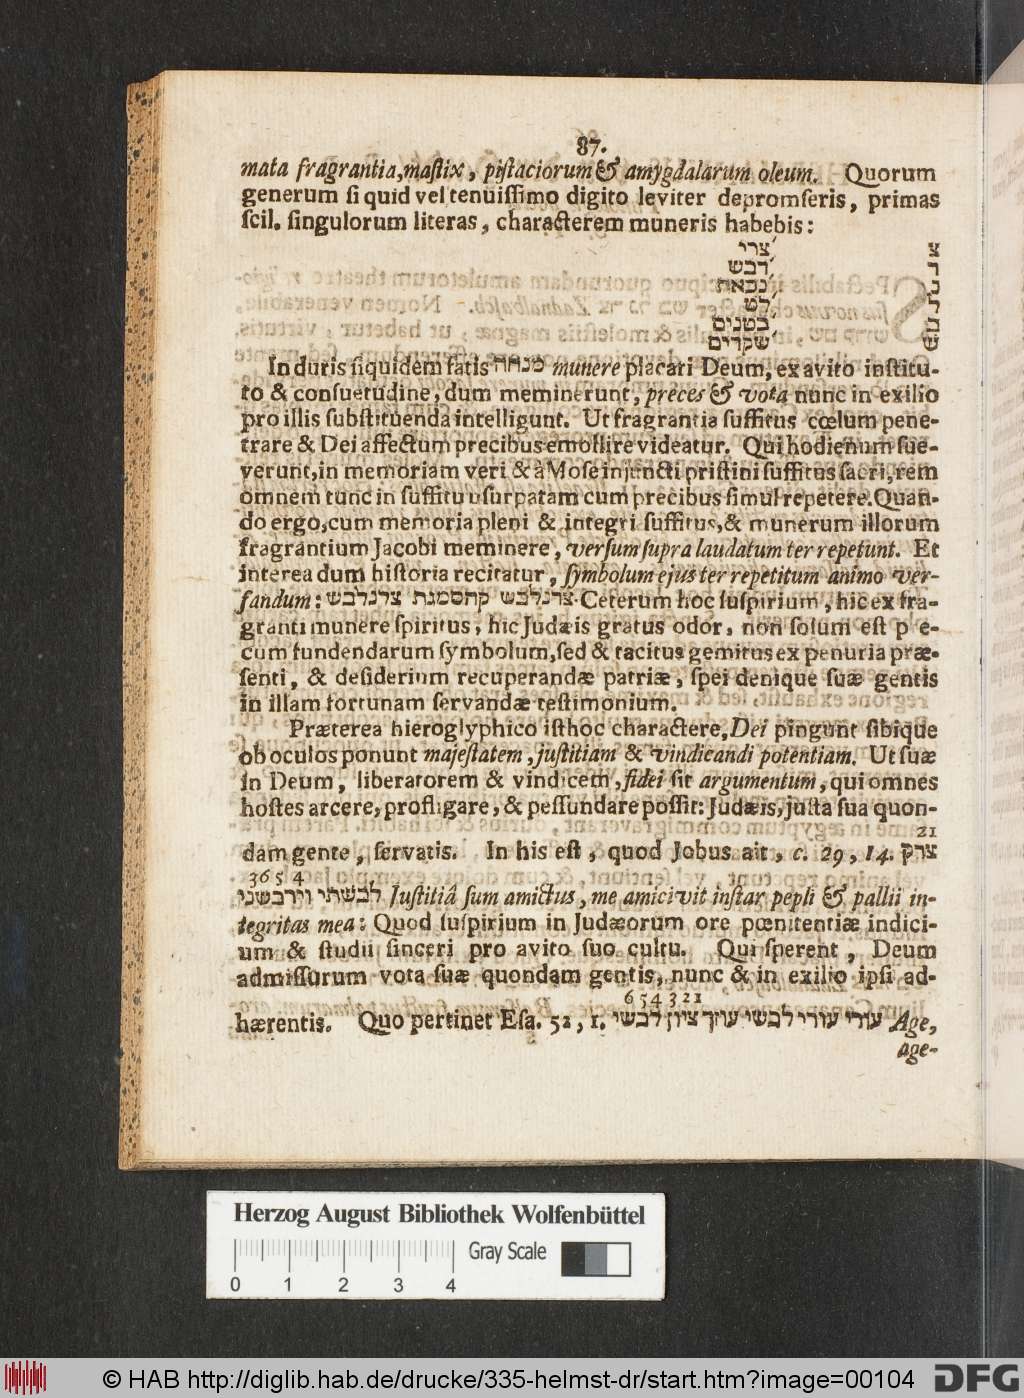 87.
mata fragrantia, maſtix, piſtaciorum & amygdalarum oleum. Quorum
generum ſi quid vel tenuiſſimo digito leviter depromſeris, primas
ſcil. ſingulorum literas, characterem muneris habebis:
צרי צ
דבש ד
נכאת נ
לט ל
בטנים ב
שקדים ש
In duris ſiquidem fatis מנחה munere placari Deum, ex avito inſtitu-
to & conſuetudine, dum meminerunt, preces & vota nunc in exilio
pro illis ſubſtituenda intelligunt. Ut fragrantia ſuffitus cœlum pene-
trare & Dei affectum precibus emollire videatur. Qui hodienum ſue-
verunt, in memoriam veri & à Moſe injuncti priſtini ſuffitus ſacri, rem
omnem tunc in ſuffitu uſurpatam cum precibus ſimul repetere. Quan-
do ergo, cum memoria pleni & integri ſuffitus, & munerum illorum
fragrantium Jacobi meminere, verſum ſupra laudatum ter repetunt. Et
interea dum hiſtoria recitatur, ſymbolum ejus ter repetitum animo ver-
ſandum: צדנלבש קהסמנת צדנלבש Ceterum hoc ſuſpirium, hic ex fra-
granti munere ſpiritus, hic Judæis gratus odor, non ſolum eſt p e-
cum fundendarum ſymbolum, ſed & tacitus gemitus ex penuria præ-
ſenti, & deſiderium recuperandæ patriæ, ſpei denique ſuæ gentis
in illam fortunam ſervandæ teſtimonium.
Præterea hieroglyphico iſthoc charactere, Dei pingunt ſibique
ob oculos ponunt majeſtatem, juſtitiam & vindicandi potentiam. Ut ſuæ
in Deum, liberatorem & vindicem, fidei ſit argumentum, qui omnes
hoſtes arcere, profligare, & peſſundare poſſit: Judæis, juſta ſua quon-
21
dam gente, ſervatis. In his eſt, quod Jobus ait, c. 29, 14. צדק
3 6 5 4
לבשתי וילבשני Juſtitiâ ſum amictus, me amicivit inſtar pepli & pallii in-
tegritas mea: Quod ſuſpirium in Judæorum ore pœnitentiæ indici-
um & ſtudii ſinceri pro avito ſuo cultu. Qui ſperent, Deum
admiſſurum vota ſuæ quondam gentis, nunc & in exilio ipſi ad-
6 5 4 3 2 1
hærentis. Quo pertinet Eſa. 52, 1. עורי עורי לבשי עוזך ציון לבשי Age,
age-
Herzog August Bibliothek Wolfenbüttel
Gray Scale
0 1 2 3 4
© HAB http://diglib.hab.de/drucke/335-helmst-dr/start.htm?image=00104
DFG